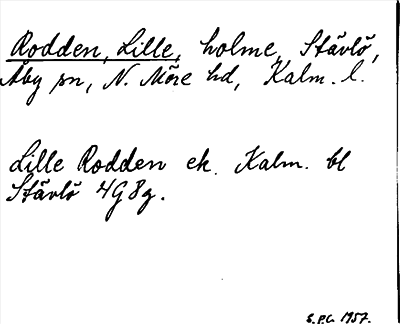 Rodden, Lille, holme, Stävlö,
Åby sn, N. Möre hd, Kalm. l.
Lille Rodden ek. Kalm. bl
Stävlö 4G8g.
S.P.G. 1957.